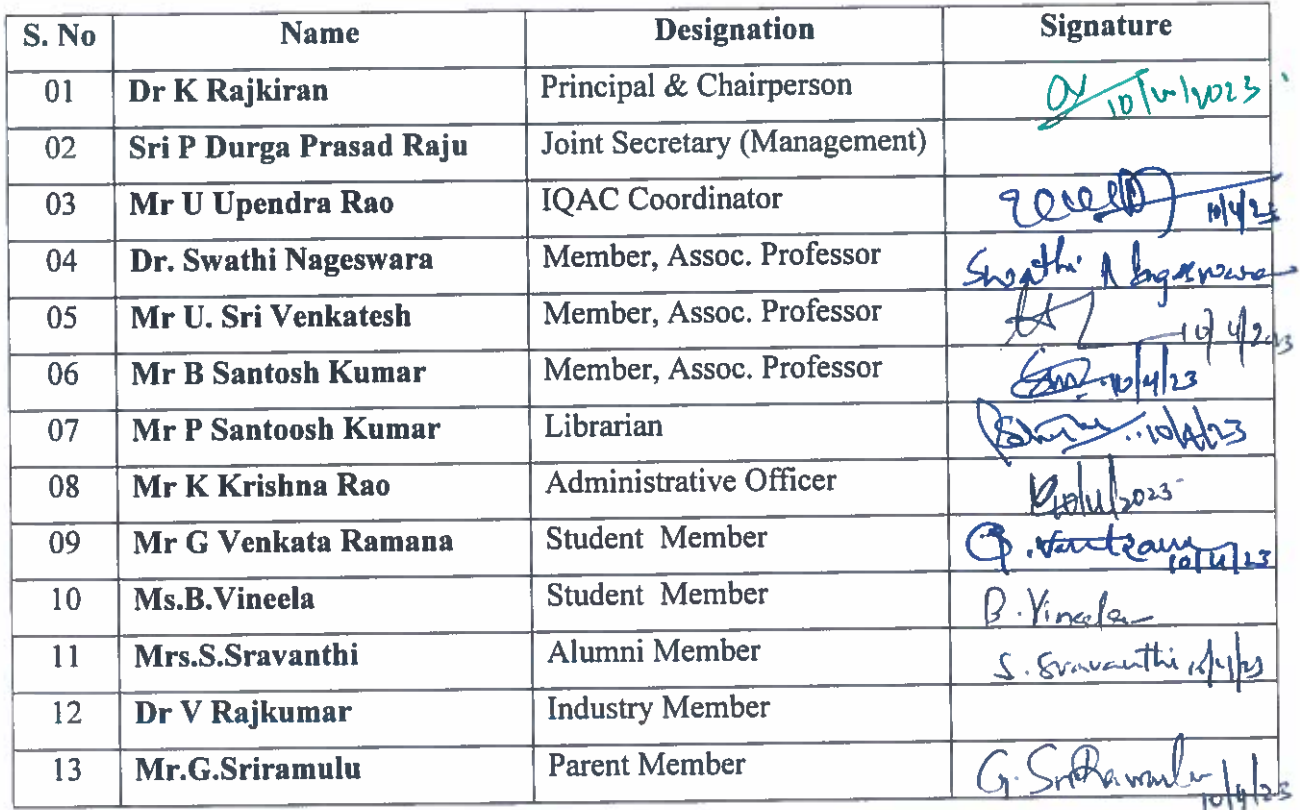 S. No Name Designation Signature
01 Dr K Rajkiran Principal & Chairperson 10/4/2023
02 Sri P Durga Prasad Raju Joint Secretary (Management)
03 Mr U Upendra Rao IQAC Coordinator 10/4/23
04 Dr. Swathi Nageswara Member, Assoc. Professor Swathi Nageswara
05 Mr U. Sri Venkatesh Member, Assoc. Professor 10/4/2023
06 Mr B Santosh Kumar Member, Assoc. Professor 10/4/23
07 Mr P Santoosh Kumar Librarian 10/4/23
08 Mr K Krishna Rao Administrative Officer 10/4/2023
09 Mr G Venkata Ramana Student Member G. 10/4/23
10 Ms.B.Vineela Student Member B. Vineela
11 Mrs.S.Sravanthi Alumni Member S. Sravanthi 10/4/23
12 Dr V Rajkumar Industry Member
13 Mr.G.Sriramulu Parent Member G. Sriramulu 10/4/23